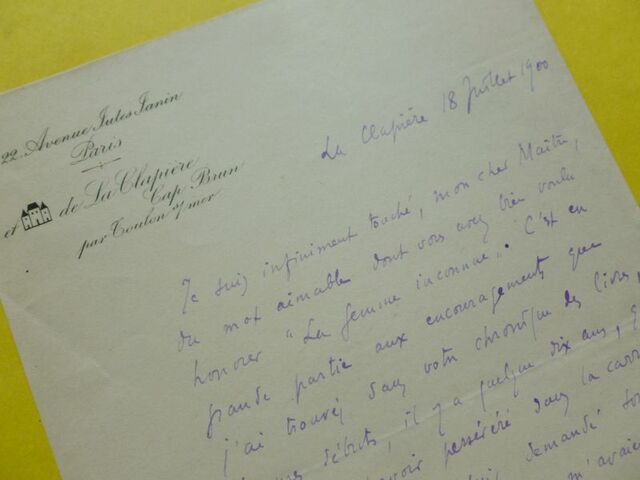 22. Avenue Jules Janin
Paris
et de La Clapière
Cap Brun
par Toulon s/ mer
La Clapière 18 Juillet 1900
Je suis infiniment touché, mon cher Maître,
du mot aimable dont vous avez bien voulu
honorer "La femme inconnue". C'est en
grande partie aux encouragements que
j'ai trouvés dans votre chronique des livres,
débuts, il y a quelque dix ans, q
avoir persévéré dans la carri
demandé
m'avaie